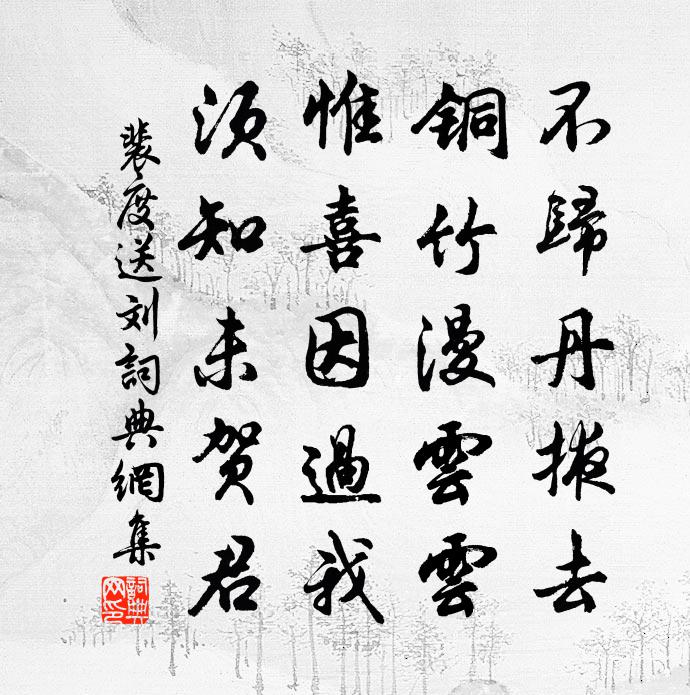 不歸丹掖去
铜竹漫雲雲
惟喜因過我
须知未贺君
裴度送刘詞典網集
詞典网印